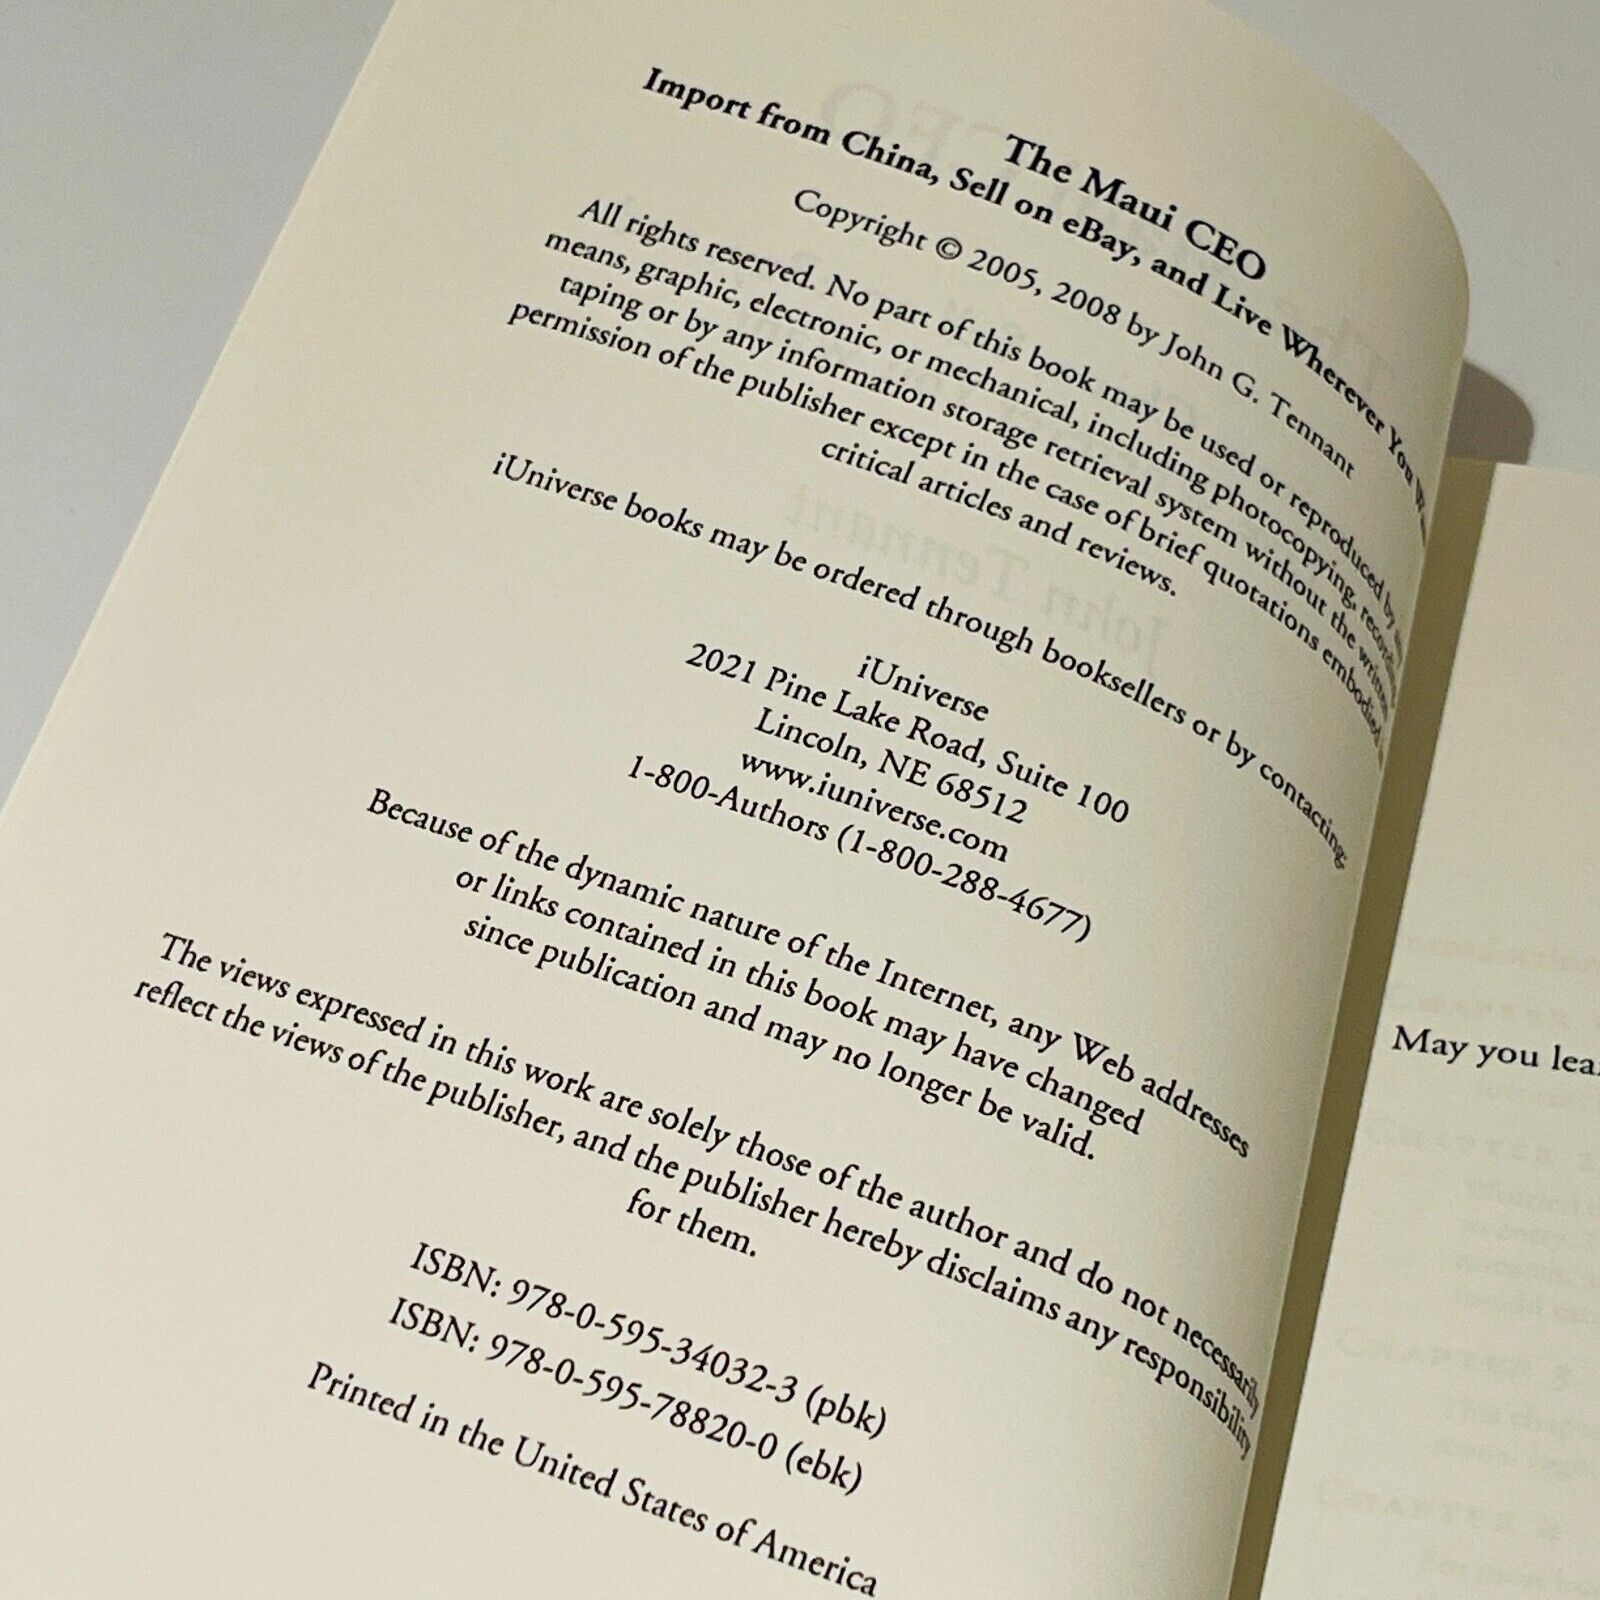 The Maui CEO
Import from China, Sell on eBay, and Live Wherever You
Copyright © 2005, 2008 by John G. Tennant
All rights reserved. No part of this book may be used or reproduced by any
means, graphic, electronic, or mechanical, including photocopying, recording,
taping or by any information storage retrieval system without the written
permission of the publisher except in the case of brief quotations embodied in
critical articles and reviews.
iUniverse books may be ordered through booksellers or by contacting:
iUniverse
2021 Pine Lake Road, Suite 100
Lincoln, NE 68512
www.iuniverse.com
1-800-Authors (1-800-288-4677)
Because of the dynamic nature of the Internet, any Web addresses
or links contained in this book may have changed
since publication and may no longer be valid.
The views expressed in this work are solely those of the author and do not necessarily
reflect the views of the publisher, and the publisher hereby disclaims any responsibility
for them.
ISBN: 978-0-595-34032-3 (pbk)
ISBN: 978-0-595-78820-0 (ebk)
Printed in the United States of America
May you lea